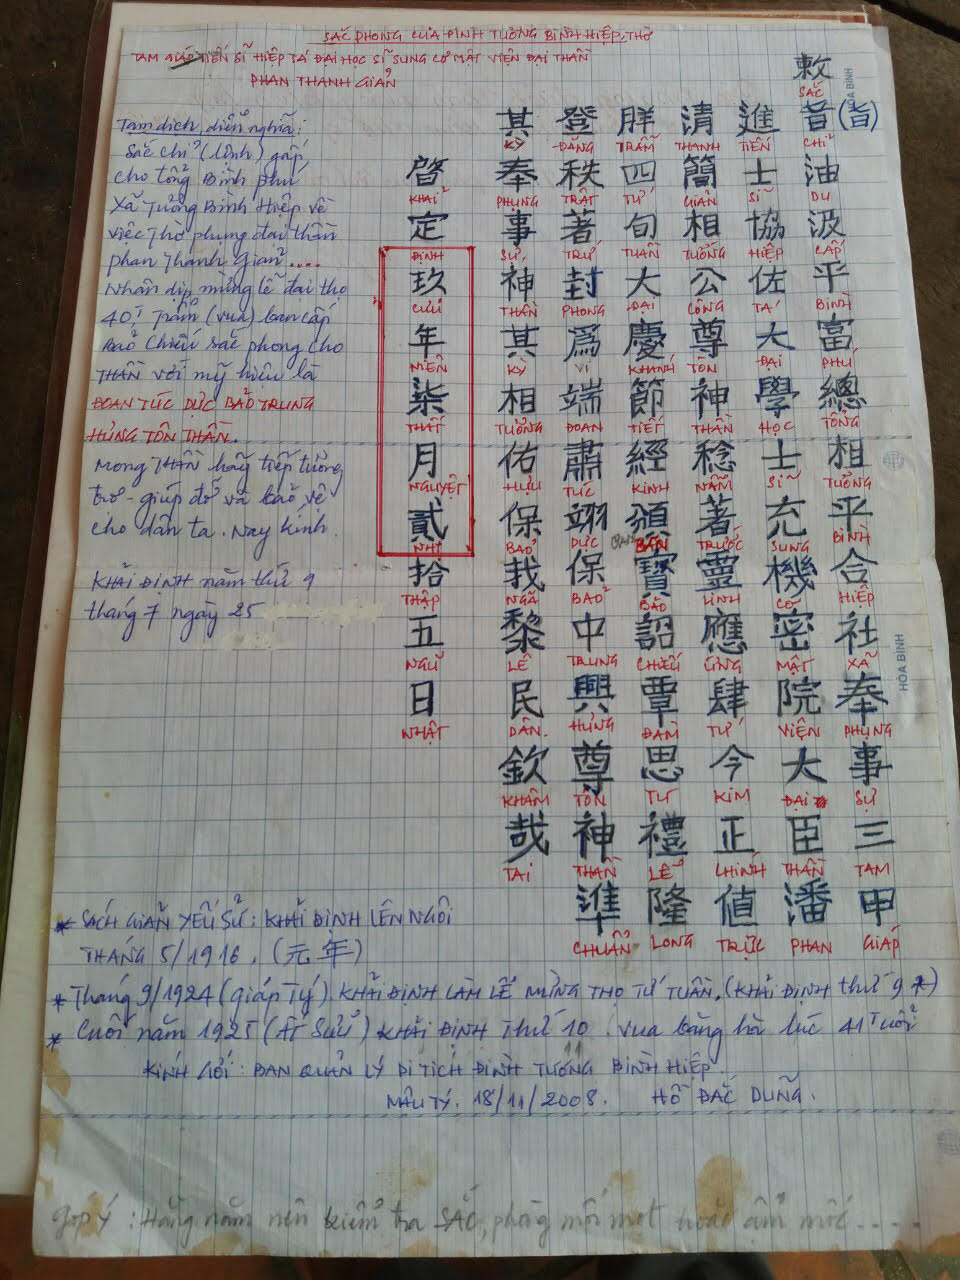 SẮC PHONG CỦA ĐÌNH TƯƠNG BÌNH HIỆP, THỜ
TAM GIÁP TIẾN SĨ HIỆP TÁ ĐẠI HỌC SĨ SUNG CƠ MẬT VIỆN ĐẠI THẦN
PHAN THANH GIẢN
HÒA BÌNH
敕
SẮC
旨(旨)
CHỈ
油
DU
汲
CẤP
平
BÌNH
富
PHÚ
總
TỔNG
相
TƯƠNG
平
BÌNH
合
HIỆP
社
XÃ
奉
PHỤNG
事
SỰ
三
TAM
甲
GIÁP
進
TIẾN
士
SĨ
協
HIỆP
佐
TÁ
大
ĐẠI
學
HỌC
士
SĨ
充
SUNG
機
CƠ
密
MẬT
院
VIỆN
大
ĐẠI
臣
THẦN
潘
PHAN
清
THANH
簡
GIẢN
相
TƯỚNG
公
CÔNG
尊
TÔN
神
THẦN
稔
NẪM
著
TRƯỚC
靈
LINH
應
ỨNG
肆
TỨ
今
KIM
正
CHÍNH
值
TRỰC
朕
TRẪM
四
TỨ
旬
TUẦN
大
ĐẠI
慶
KHÁNH
節
TIẾT
經
KINH
頒
BAN
寶
BẢO
詔
CHIẾU
覃
ĐÀM
思
TƯ
禮
LỄ
隆
LONG
登
ĐĂNG
秩
TRẬT
著
TRỨ
封
PHONG
爲
VI
端
ĐOAN
肅
TÚC
翊
DỰC
保
BẢO
中
TRUNG
興
HƯNG
尊
TÔN
神
THẦN
準
CHUẨN
其
KỲ
奉
PHỤNG
事
SỰ
神
THẦN
其
KỲ
相
TƯƠNG
佑
HỰU
保
BẢO
我
NGÃ
黎
LÊ
民
DÂN
欽
KHÂM
哉
TAI
啓
KHẢI
定
ĐỊNH
玖
CỬU
年
NIÊN
柒
THẤT
月
NGUYỆT
貳
NHỊ
拾
THẬP
五
NGŨ
日
NHẬT
Tạm dịch diễn nghĩa:
Sắc chỉ (lệnh) gấp,
cho tổng Bình phú
Xã Tương Bình Hiệp về
việc thờ phụng đại thần
phan Thanh Giản....
Nhân dịp mừng lễ đại thọ
40, Trẩm (vua) ban cấp
Bảo chiếu sắc phong cho
THẦN với mỹ hiệu là
ĐOAN TÚC DỰC BẢO TRUNG
HƯNG TÔN THẦN.
Mong THẦN hãy tiếp tương
trợ - giúp đỡ và bảo vệ
cho dân ta. Nay kính.
KHẢI ĐỊNH năm thứ 9
tháng 7 ngày 25
HÒA BÌNH
* SÁCH GIẢN YẾU SỬ: KHẢI ĐỊNH LÊN NGÔI
THÁNG 5/1916. (元年)
* Tháng 9/1924 (giáp Tý) KHẢI ĐỊNH LÀM LỄ MỪNG THỌ TỨ TUẦN. (KHẢI ĐỊNH thứ 9 *)
* Cuối năm 1925 (Ất Sửu) KHẢI ĐỊNH THỨ 10. vua băng hà lúc 41 Tuổi
KÍNH GỞI: BAN QUẢN LÝ DI TÍCH ĐÌNH TƯƠNG BÌNH HIỆP.
MẬU TÝ. 18/11/2008. HỒ ĐẮC DUNG.
góp ý: Hằng năm nên kiểm tra SẮC, phòng mối mọt hoặc ẩm mốc....